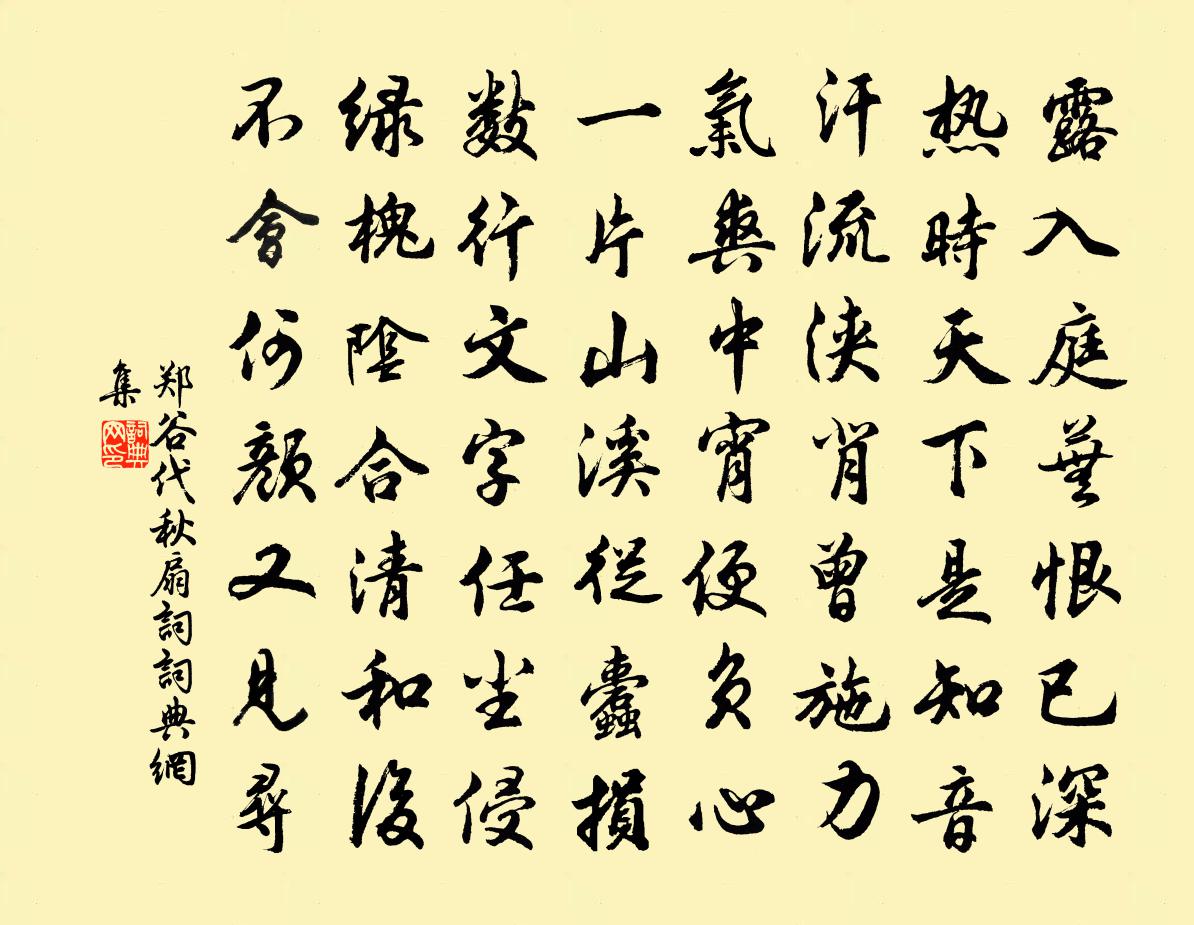 露入庭蕪恨已深
熱時天下是知音
汗流浹背曾施力
氣爽中宵便負心
一片山溪從蠹損
數行文字任坐侵
绿槐陰合清和後
不會何顏又見尋
郑谷代秋扇詞詞典網
集
詞典网印